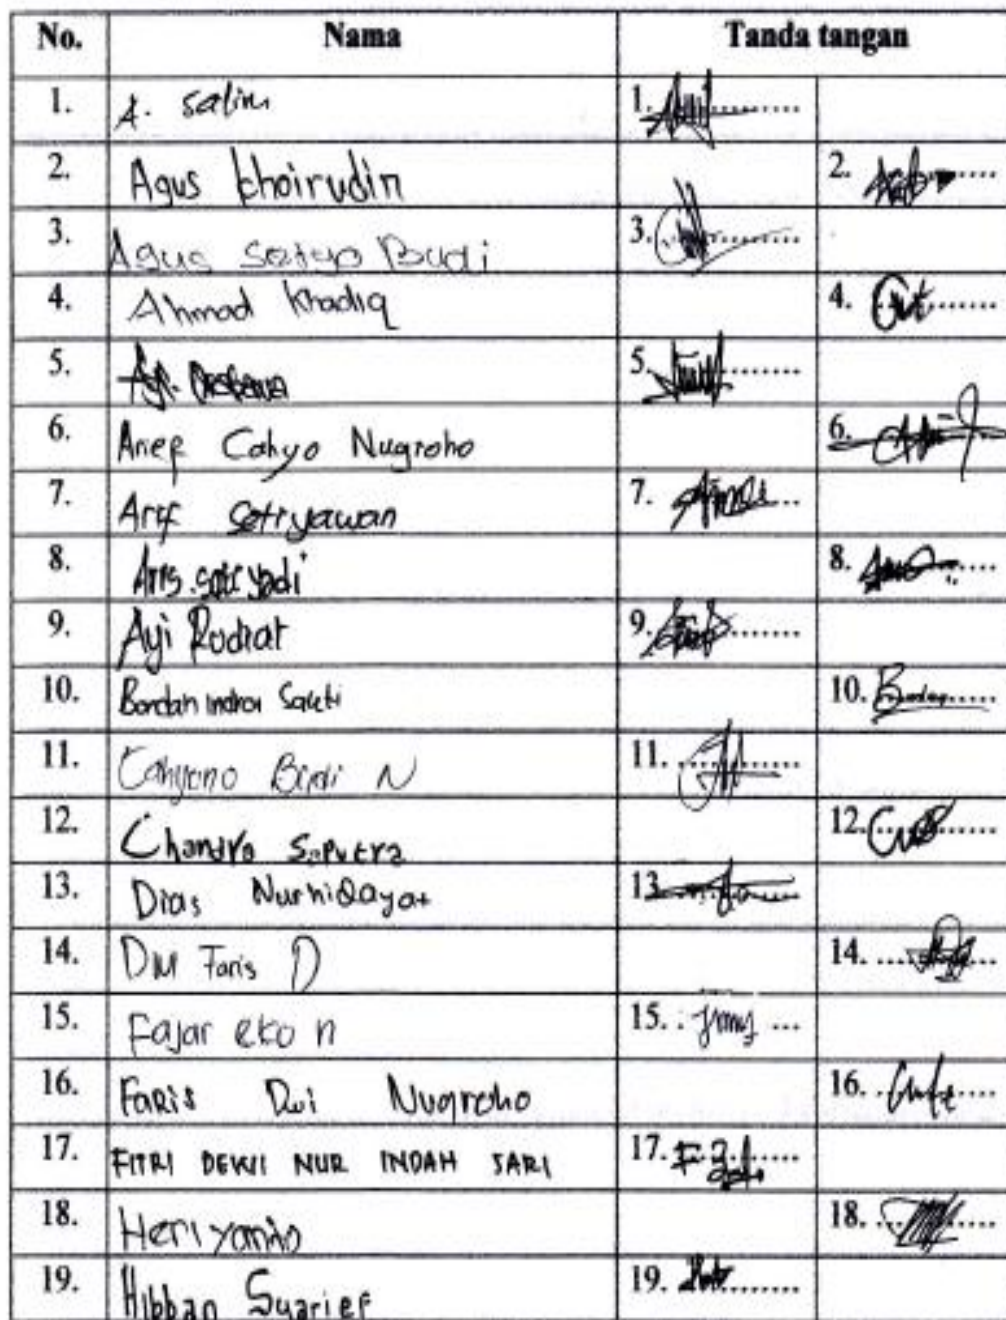 No. Nama Tanda tangan
1. A. Salim 1.
2. Agus Khoirudin 2.
3. Agus Setyo Budi 3.
4. Ahmad Khadiq 4.
5. 5.
6. Arief Cahyo Nugroho 6.
7. Arif Setiyawan 7.
8. Aris. setiyadi 8.
9. Ayi Rudiat 9.
10. Bondan Indra Sakti 10.
11. Cahyono Budi N 11.
12. Chandra Saputra 12.
13. Dias Nurhidayat 13.
14. DM Faris D 14.
15. Fajar eko n 15.
16. FaRis Dwi Nugroho 16.
17. FITRI DEWI NUR INDAH SARI 17.
18. Heriyanto 18.
19. Hibban Syarief 19.